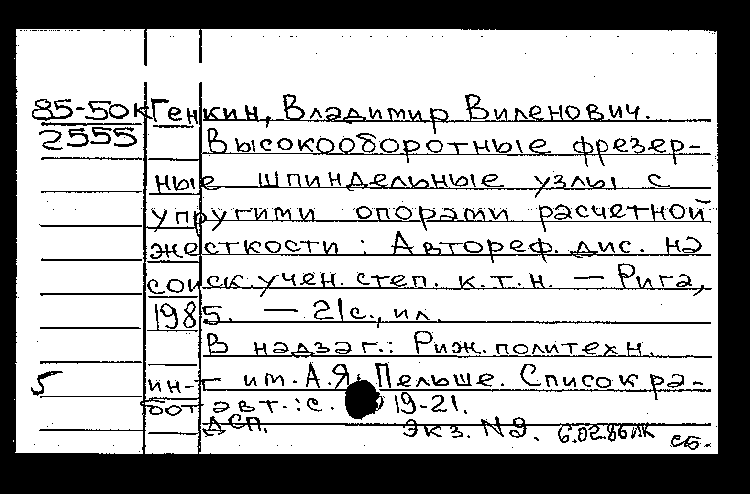 85-50к Генкин, Владимир Виленович.
2555 Высокооборотные фрезер-
ные шпиндельные узлы с
упругими опорами расчетной
жесткости : Автореф. дис. на
соиск. учен. степ. к.т.н. — Рига,
1985. — 21с., ил.
В надзаг.: Риж. политехн.
5 ин-т им. А.Я. Пельше. Список ра-
бот авт.: с. 19-21.
ДСП. Экз. №9. 6.02.86